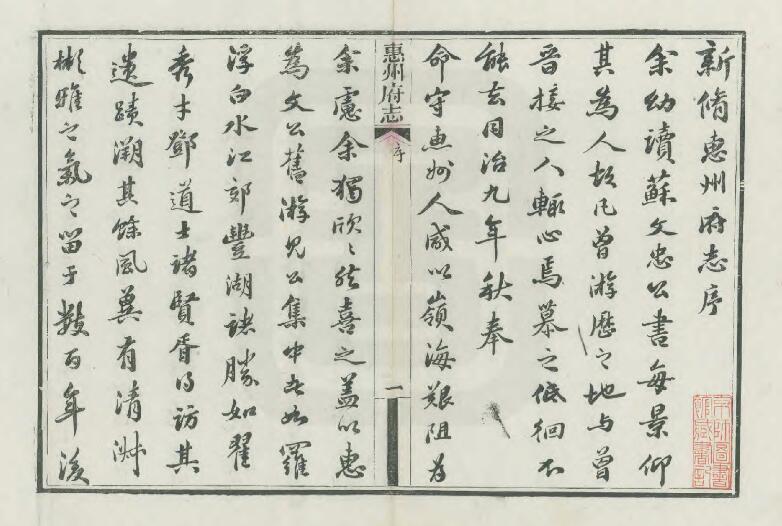 新脩惠州府志序
余幼讀蘇文忠公書每景仰
其為人故凡曾游歷之地与曾
晉接之人輙心焉慕之低徊不
能去同治九年秋奉
命守惠州人咸以嶺海艱阻為
惠州府志
序
一
余慮余獨欣欣然喜之蓋以惠
為文公舊游見公集中者如羅
浮白水江郊豐湖諸勝如翟
秀才鄧道士諸賢胥得訪其
遺蹟溯其餘風冀有清淑
彬雅之氣之留于數百年後